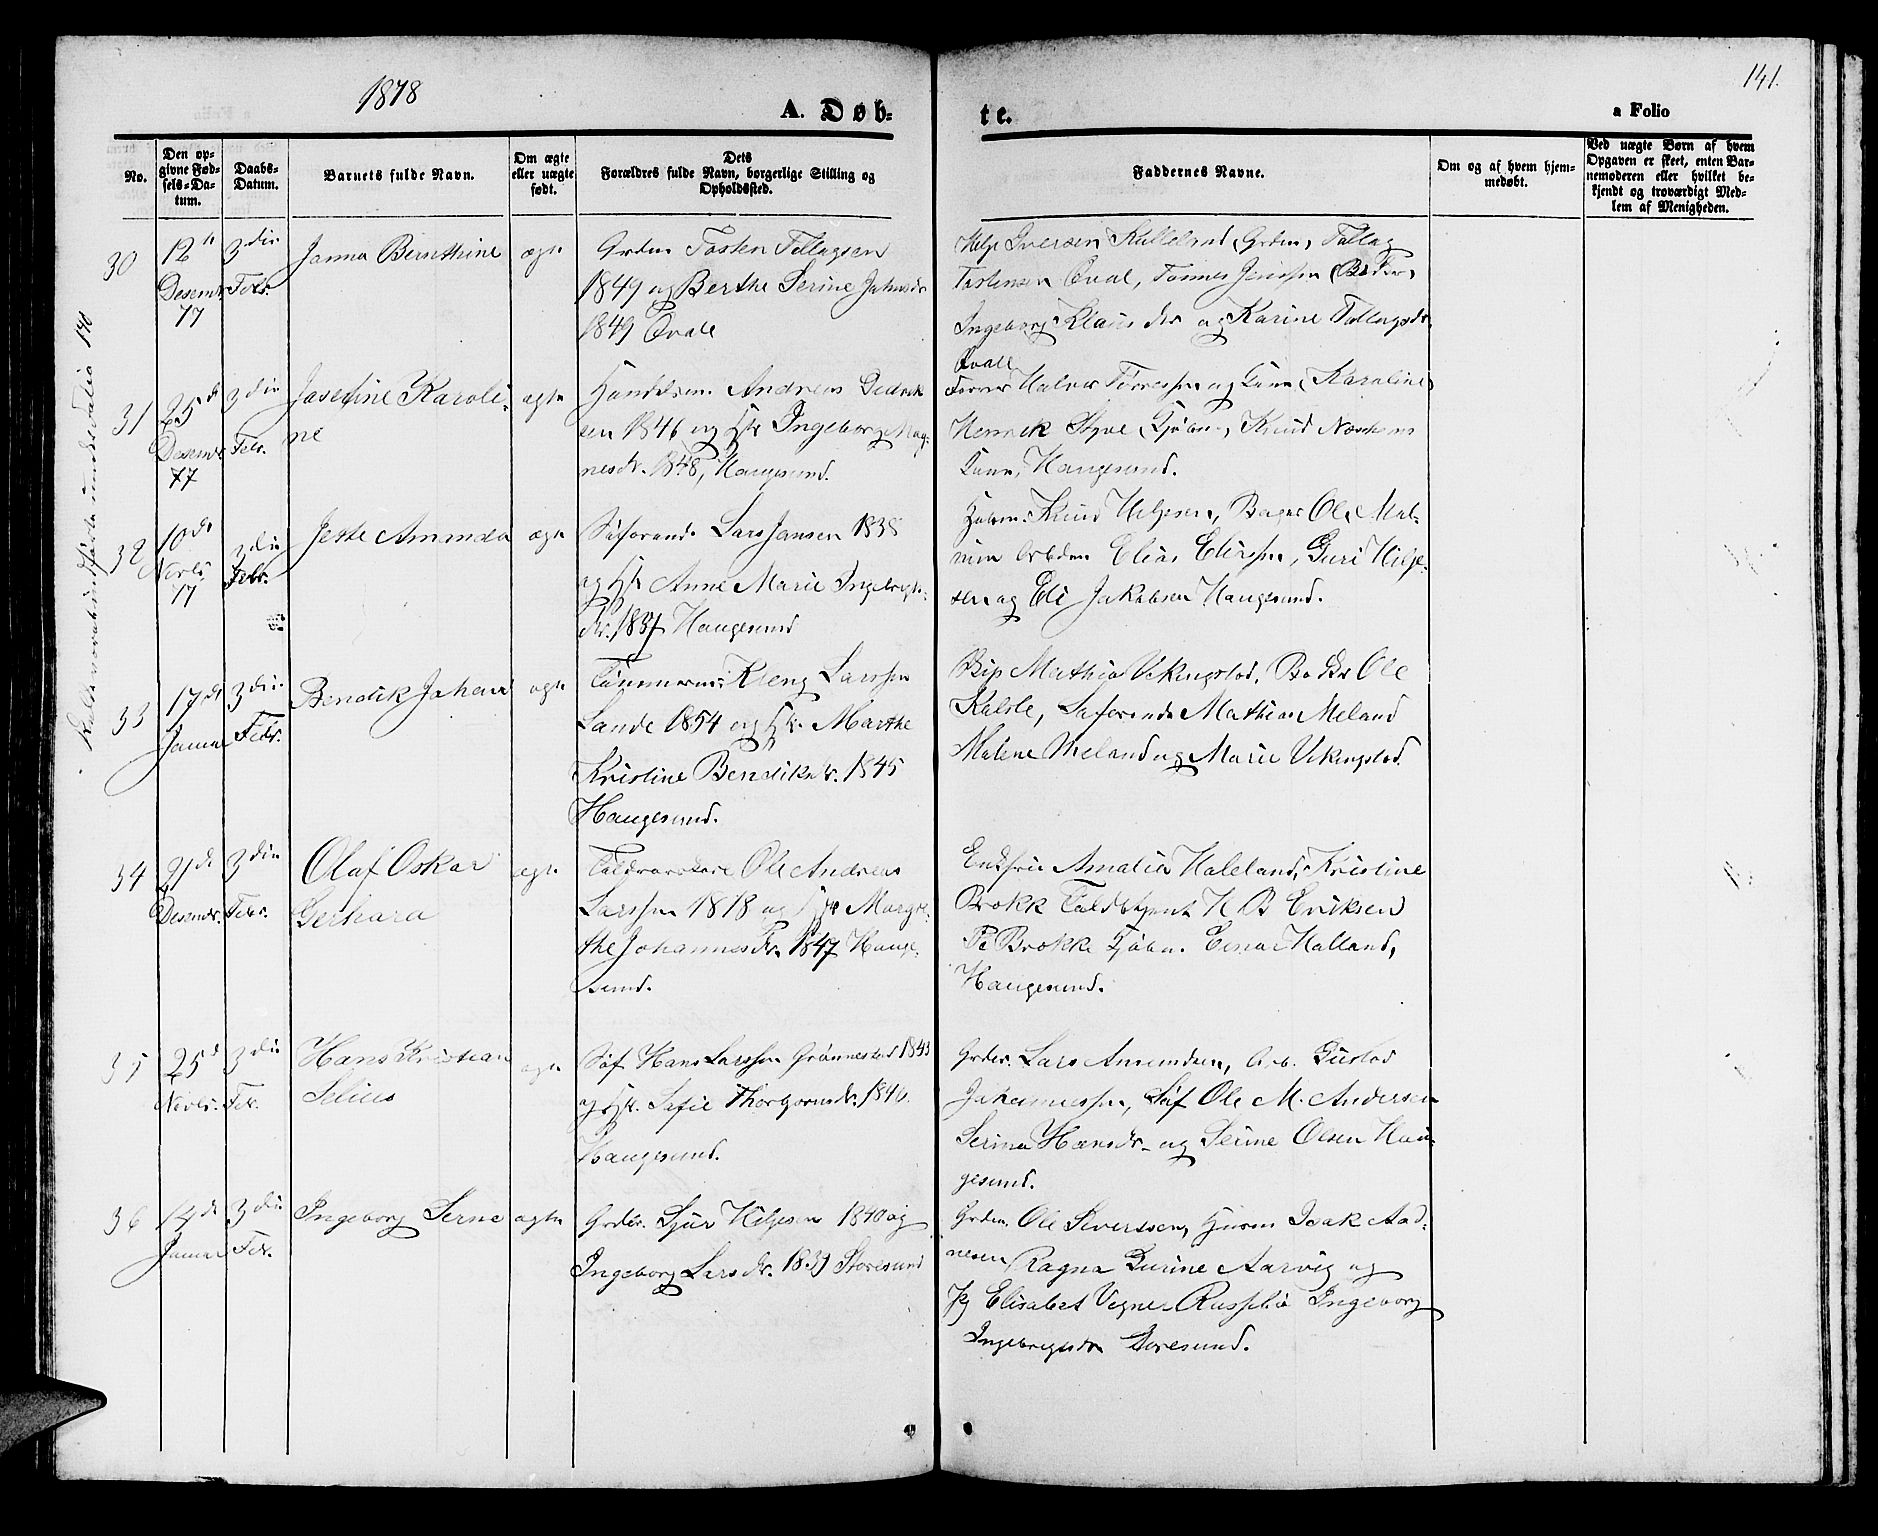 1878
A. Døb-
te.
a Folio
141.
No.
Den op-
givne Fød-
sels-Da-
tum.
Daabs-
Datum.
Barnets fulde Navn.
Om ægte
eller uægte
født.
Dets
Forældres fulde Navn, borgerlige Stilling og
Opholdssted.
Faddernes Navne.
Om og af hvem hjem-
medøbt.
Ved uægte Børn af hvem
Opgaven er skeet, enten Bar-
nemoderen eller hvilket be-
kjendt og troværdigt Med-
lem af Menigheden.
30
12
Desembr
77
3die
Febr.
Janna Bernthine
ægte
Grdm Tosten Tollagsen
1849 og Berthe Serine Johnsdr
1849 Qvale
Helje Iversen Kalleland, Grdm, Tollag
Tostensen Qval, Tønnes
Ingeborg Klausdr og Karine Tollagsdr
Qvale
31
25d
Desembr
77
3die
Febr.
Josefine Karoli-
ne
ægte
Andreas Didrik
sen 1846 og Hstr Ingeborg Mag-
nesdr. 1848, Haugesund.
Halvor Tørresen og Kone, Karoline
Henrik Styve, Knud
Kone, Haugesund.
32
10de
Novbr
77
3die
Febr.
Jette Amanda
ægte
Søfarende Lars Jansen 1838
og Hstr Anne Marie Ingebrigts-
dr. 1837 Haugesund
Knud Helgesen, Bager Ole Mal-
min Arbdm Elias Eliassen, Guri Helge-
sen og Eli Jakobsen Haugesund.
33
17de
Januar
3die
Febr.
Bendik Johan
ægte
Tømmerm: Kleng Larssen
Sande 1854 og Hstr. Marthe
Kristine Bendiksdr. 1845
Haugesund.
Skip Mathias Vikingstad, Ole
Kalste, Søfarende Mathias Meland
Malene Meland og Marie Vikingstad.
34
21de
Desembr.
3die
Febr.
Olaf Oskar
Gerhard
ægte
Toldvagtskarl Ole Andreas
Larssen 1818 og Hstr Margre-
the Johannesdr. 1847 Hauge-
sund.
Enkefru Amalia Haleland, Kristine
Brokk Toldbetjent H B Eriksen
P Brokke Kjøbm. Einar Halland,
Haugesund.
35
25d
Novbr.
3die
Febr.
Hans Kristian
Selius
ægte
Søf Hans Larssen Grønnestad 1843
og Hstr. Sofie Thorbjørnsdr. 1846.
Haugesund.
Grdbr. Lars Amundsen, Arb. Gustav
Johannessen, Søf Ole M. Andersen
Serina Hansdr og Serine Olsen Hau-
gesund.
36
14de
Januar
3die
Febr.
Ingeborg Serine
ægte
Grdbr. Sjur Helgesen 1840 og
Ingeborg Larsdr. 1837 Storesund
Grdm, Ole Sivertsen, Husm Isak Aad-
nesen, Ragna Gurine Aarvig og
Elisabet Vegner Ingeborg
Ingebrigtsdr Storesund.